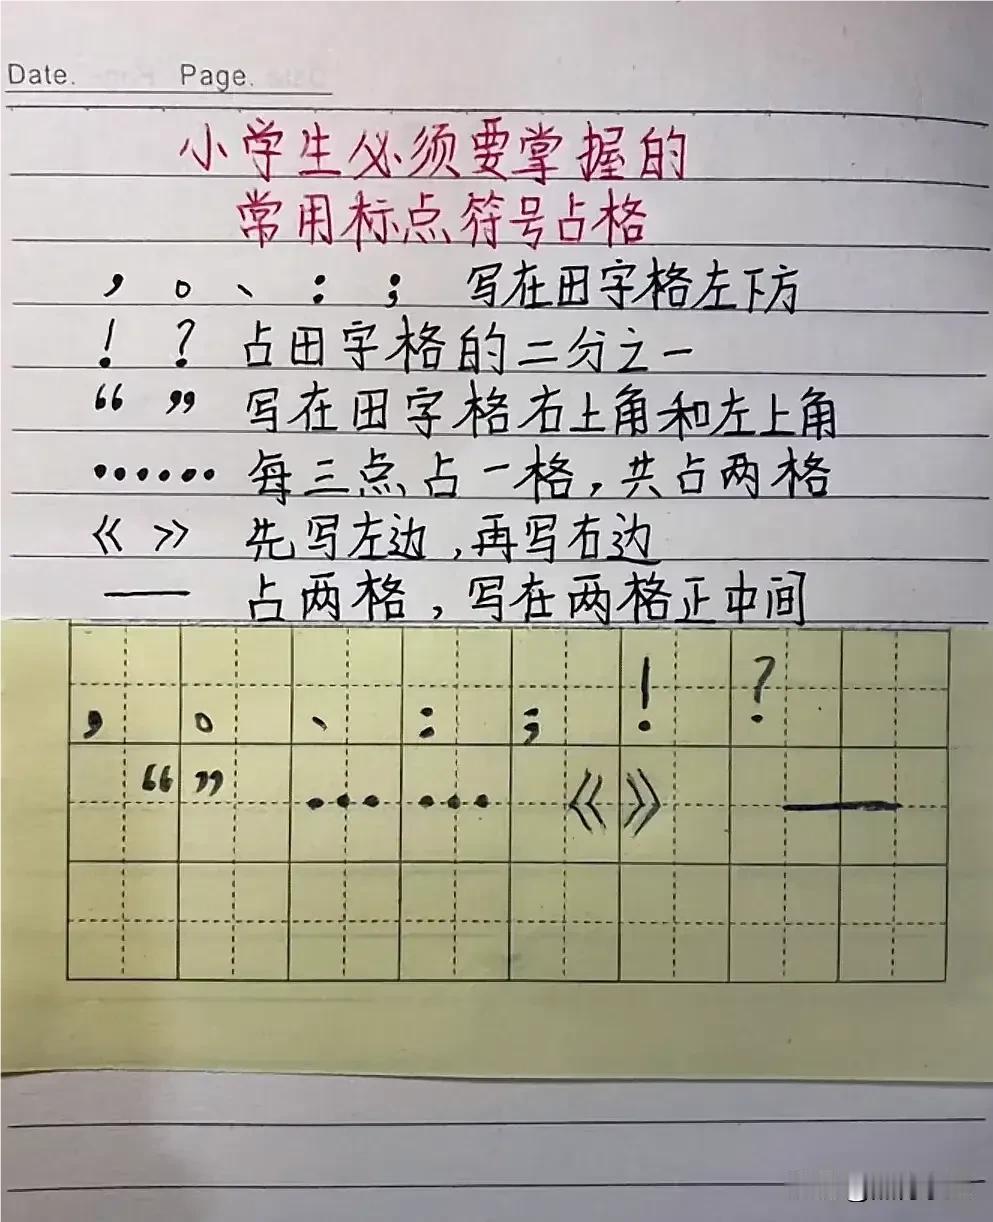 Date. Page.
小学生必须要掌握的
常用标点符号占格
， 。 、 ： ； 写在田字格左下方
！ ？ 占田字格的二分之一
“ ” 写在田字格右上角和左上角
…… 每三点占一格，共占两格
《 》 先写左边，再写右边
—— 占两格，写在两格正中间
， 。 、 ： ； ！ ？
“ ” …… 《 》 ——